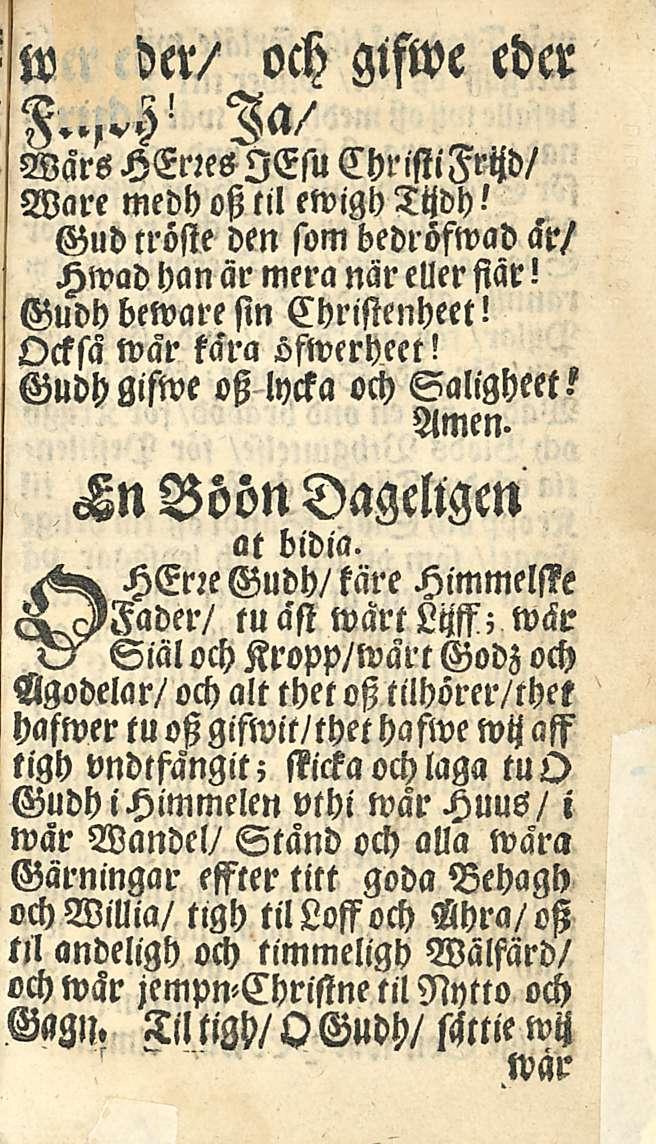 der/ och gifwe eder
Ja/
Wårs HErres JEsu Christi Frijd/
Ware medh oß til ewigh Tijdh!
Gud tröste den som bedröfwad är/
Hwad han är mera när eller fiär!
Gudh beware sin Christenheet!
Också wår kära öfwerheet!
Gudh gifwe oß lycka och Saligheet!
Amen.
En Böön Dageligen
at bidia.
O HErre Gudh/ käre Himmelske
Fader/ tu äst wårt Lijff; wår
Siäl och Kropp/ wårt Godz och
Ägodelar/ och alt thet oß tilhörer/ thet
hafwer tu oß gifwit/ thet hafwe wij aff
tigh vndtfångit; skicka och laga tu O
Gudh i Himmelen vthi wår Huus/ i
wår Wandel/ Stånd och alla wåra
Gärningar effter titt goda Behagh
och Willia/ tigh til Loff och Ähra/ oß
til andeligh och timmeligh Wälfärd/
och wår jempn-Christne til Nytto och
Gagn. Til tigh/ O Gudh/ sättie wij
wår